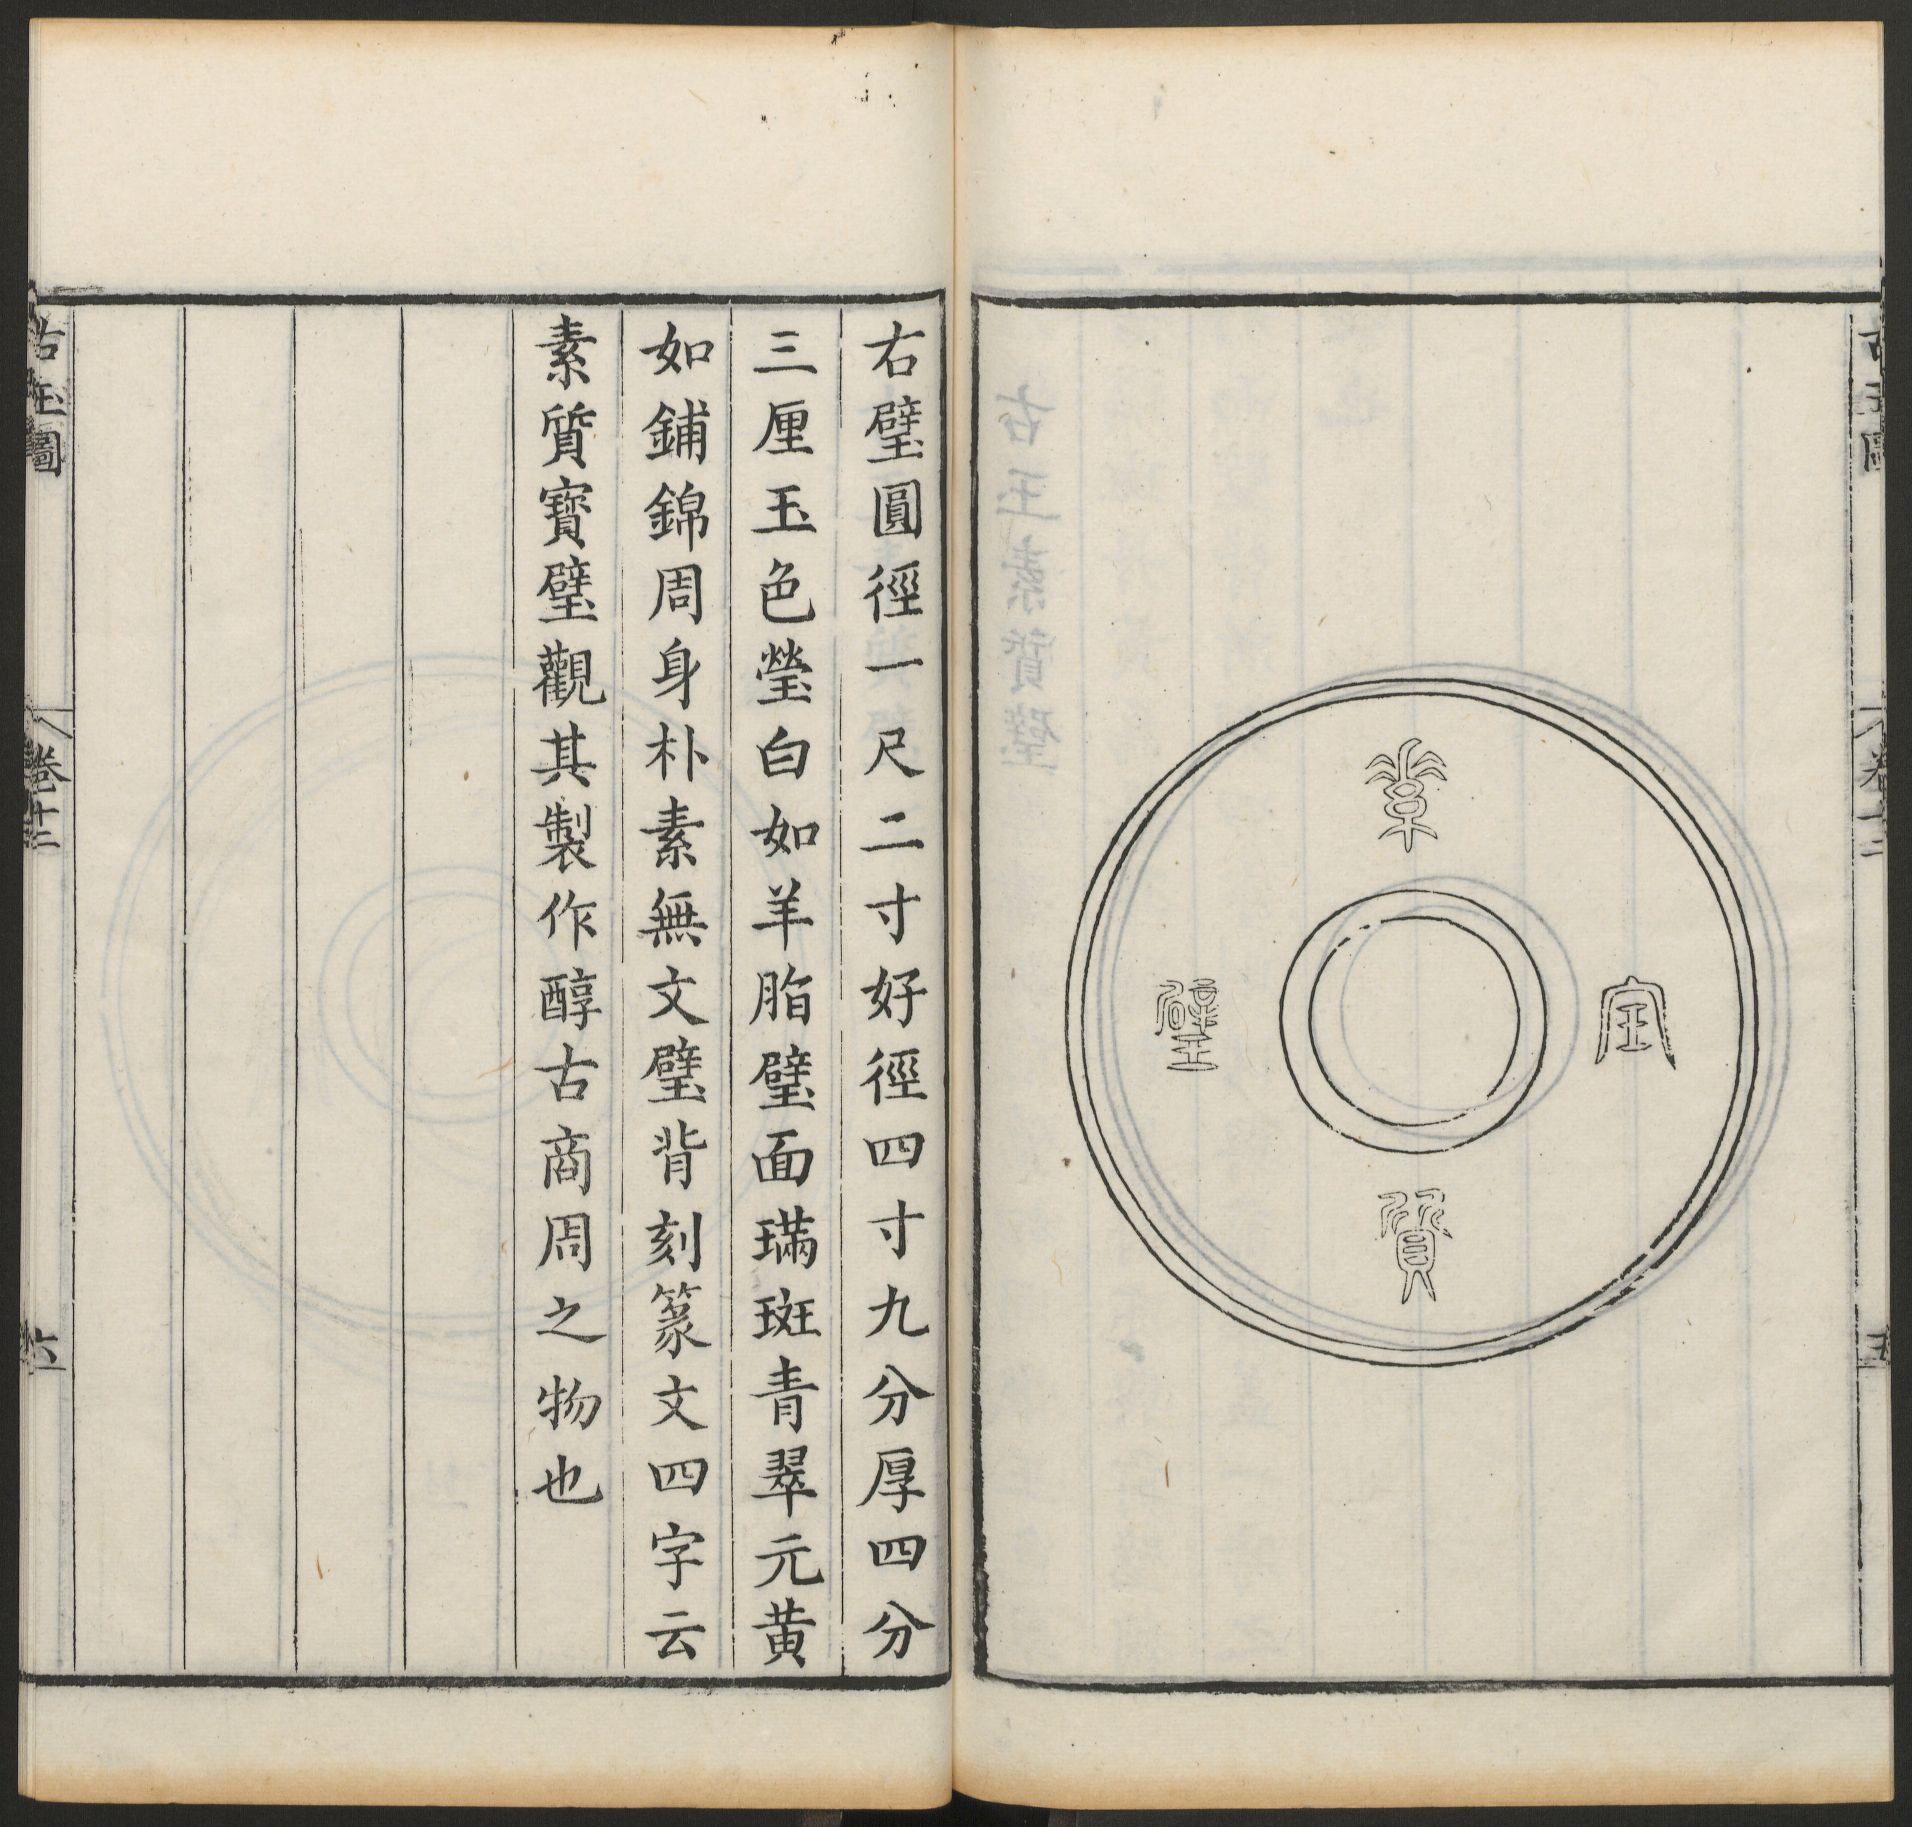 古玉圖
卷十二
五
素
寶
璧
質
右璧圓徑一尺二寸好徑四寸九分厚四分
三厘玉色瑩白如羊脂璧面璊斑青翠元黄
如鋪錦周身朴素無文璧背刻篆文四字云
素質寳璧觀其製作醇古商周之物也
古玉圖
卷十二
六